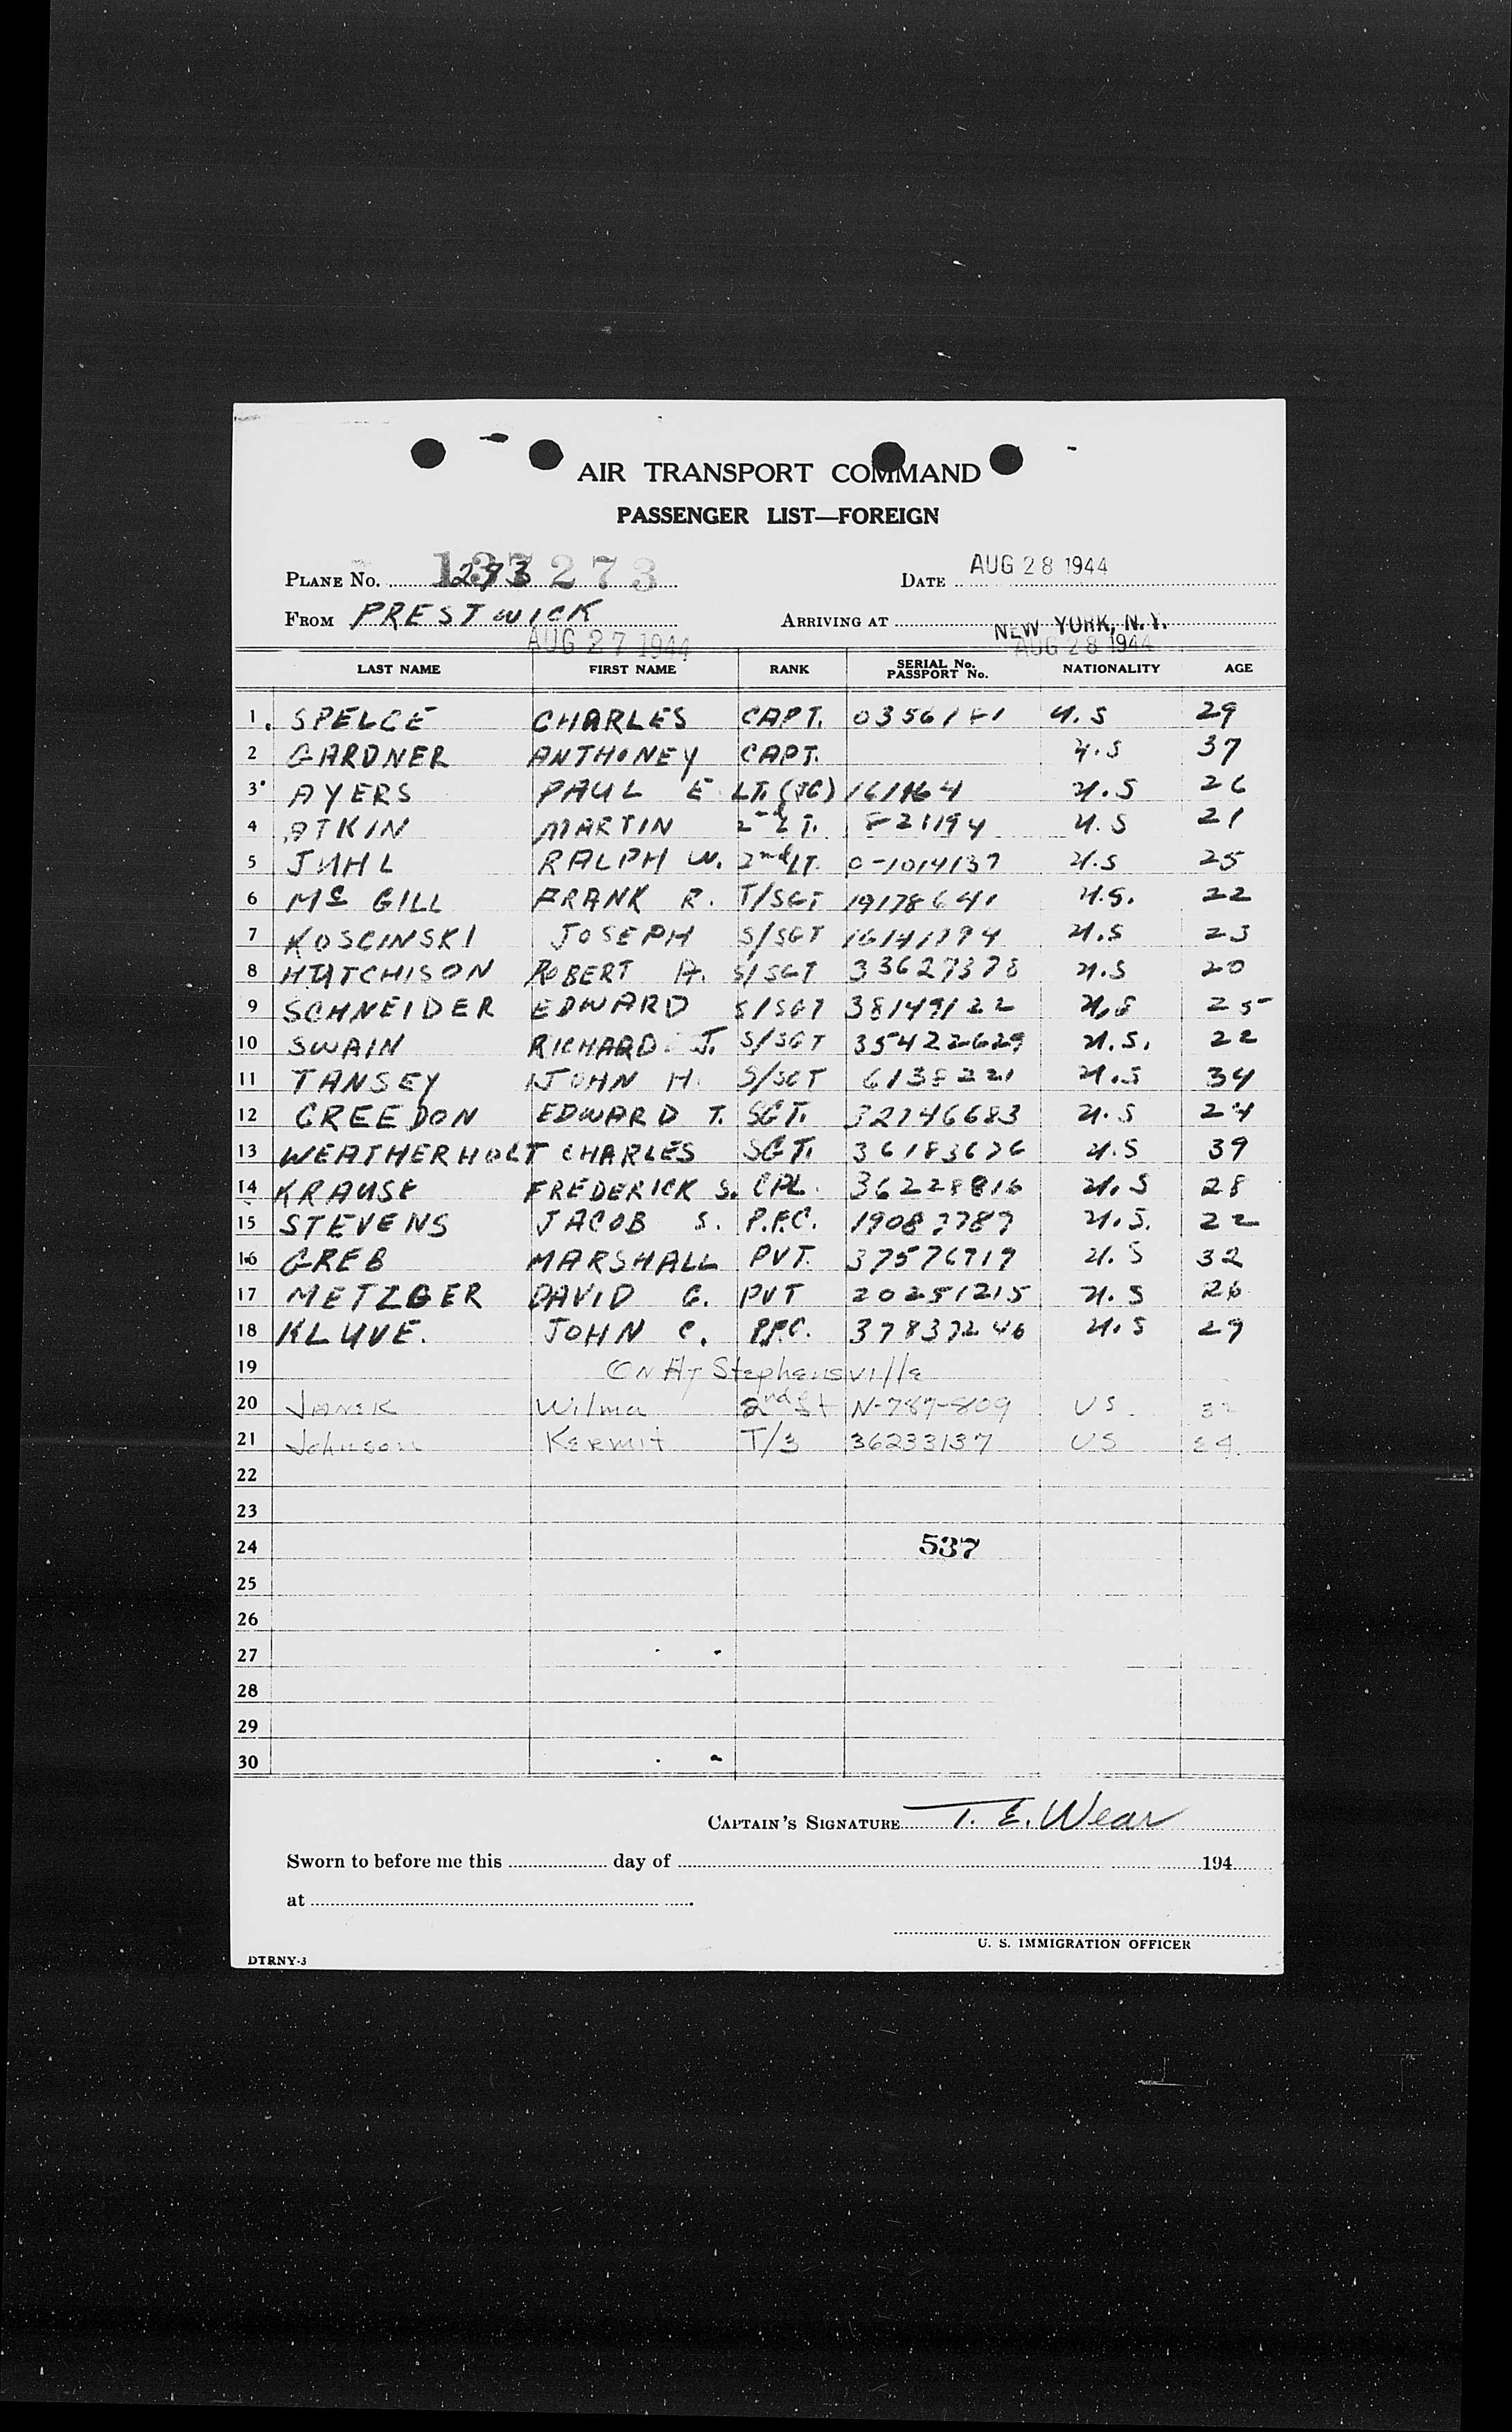 AIR TRANSPORT COMMAND
PASSENGER LIST—FOREIGN
PLANE No. 273 DATE AUG 28 1944
FROM PRESTWICK ARRIVING AT NEW YORK, N.Y.
AUG 27 1944 AUG 28 1944
LAST NAME FIRST NAME RANK SERIAL No. PASSPORT No. NATIONALITY AGE
1 SPELCE CHARLES CAPT. U.S 29
2 GARDNER ANTHONEY CAPT. U.S 37
3 AYERS PAUL E LT. (JG) 161164 U.S 26
4 ATKIN MARTIN 2nd LT. 821194 U.S 21
5 JUHL RALPH W. 2nd LT. 0-1014137 U.S 25
6 Mc GILL FRANK R. T/SGT 19178641 U.S. 22
7 KOSCINSKI JOSEPH S/SGT U.S 23
8 HUTCHISON ROBERT A. S/SGT 33627378 U.S 20
9 SCHNEIDER EDWARD S/SGT 38149122 U.S 25
10 SWAIN RICHARD J. S/SGT 35422629 U.S. 22
11 TANSEY JOHN H. S/SGT 6138221 U.S 34
12 CREEDON EDWARD T. SGT. 32746683 U.S 24
13 WEATHERHOLT CHARLES SGT. 36183676 U.S 39
14 KRAUSE FREDERICK S. CPL. 36228816 U.S 28
15 STEVENS JACOB S. P.F.C. 19087787 U.S. 22
16 GREB MARSHALL PVT. 37576717 U.S 32
17 METZGER DAVID G. PVT 20251215 U.S 26
18 KLUVE. JOHN C. P.F.C. 37837246 U.S 29
19 ON AT Stephensville
20 Wilma 2nd N-787-809 US
21 Johnson Kermit T/3 36233137 US 24
22
23
24 537
25
26
27
28
29
30
CAPTAIN'S SIGNATURE T. E. Wear
Sworn to before me this day of 194
at
U. S. IMMIGRATION OFFICER
DTRNY-3